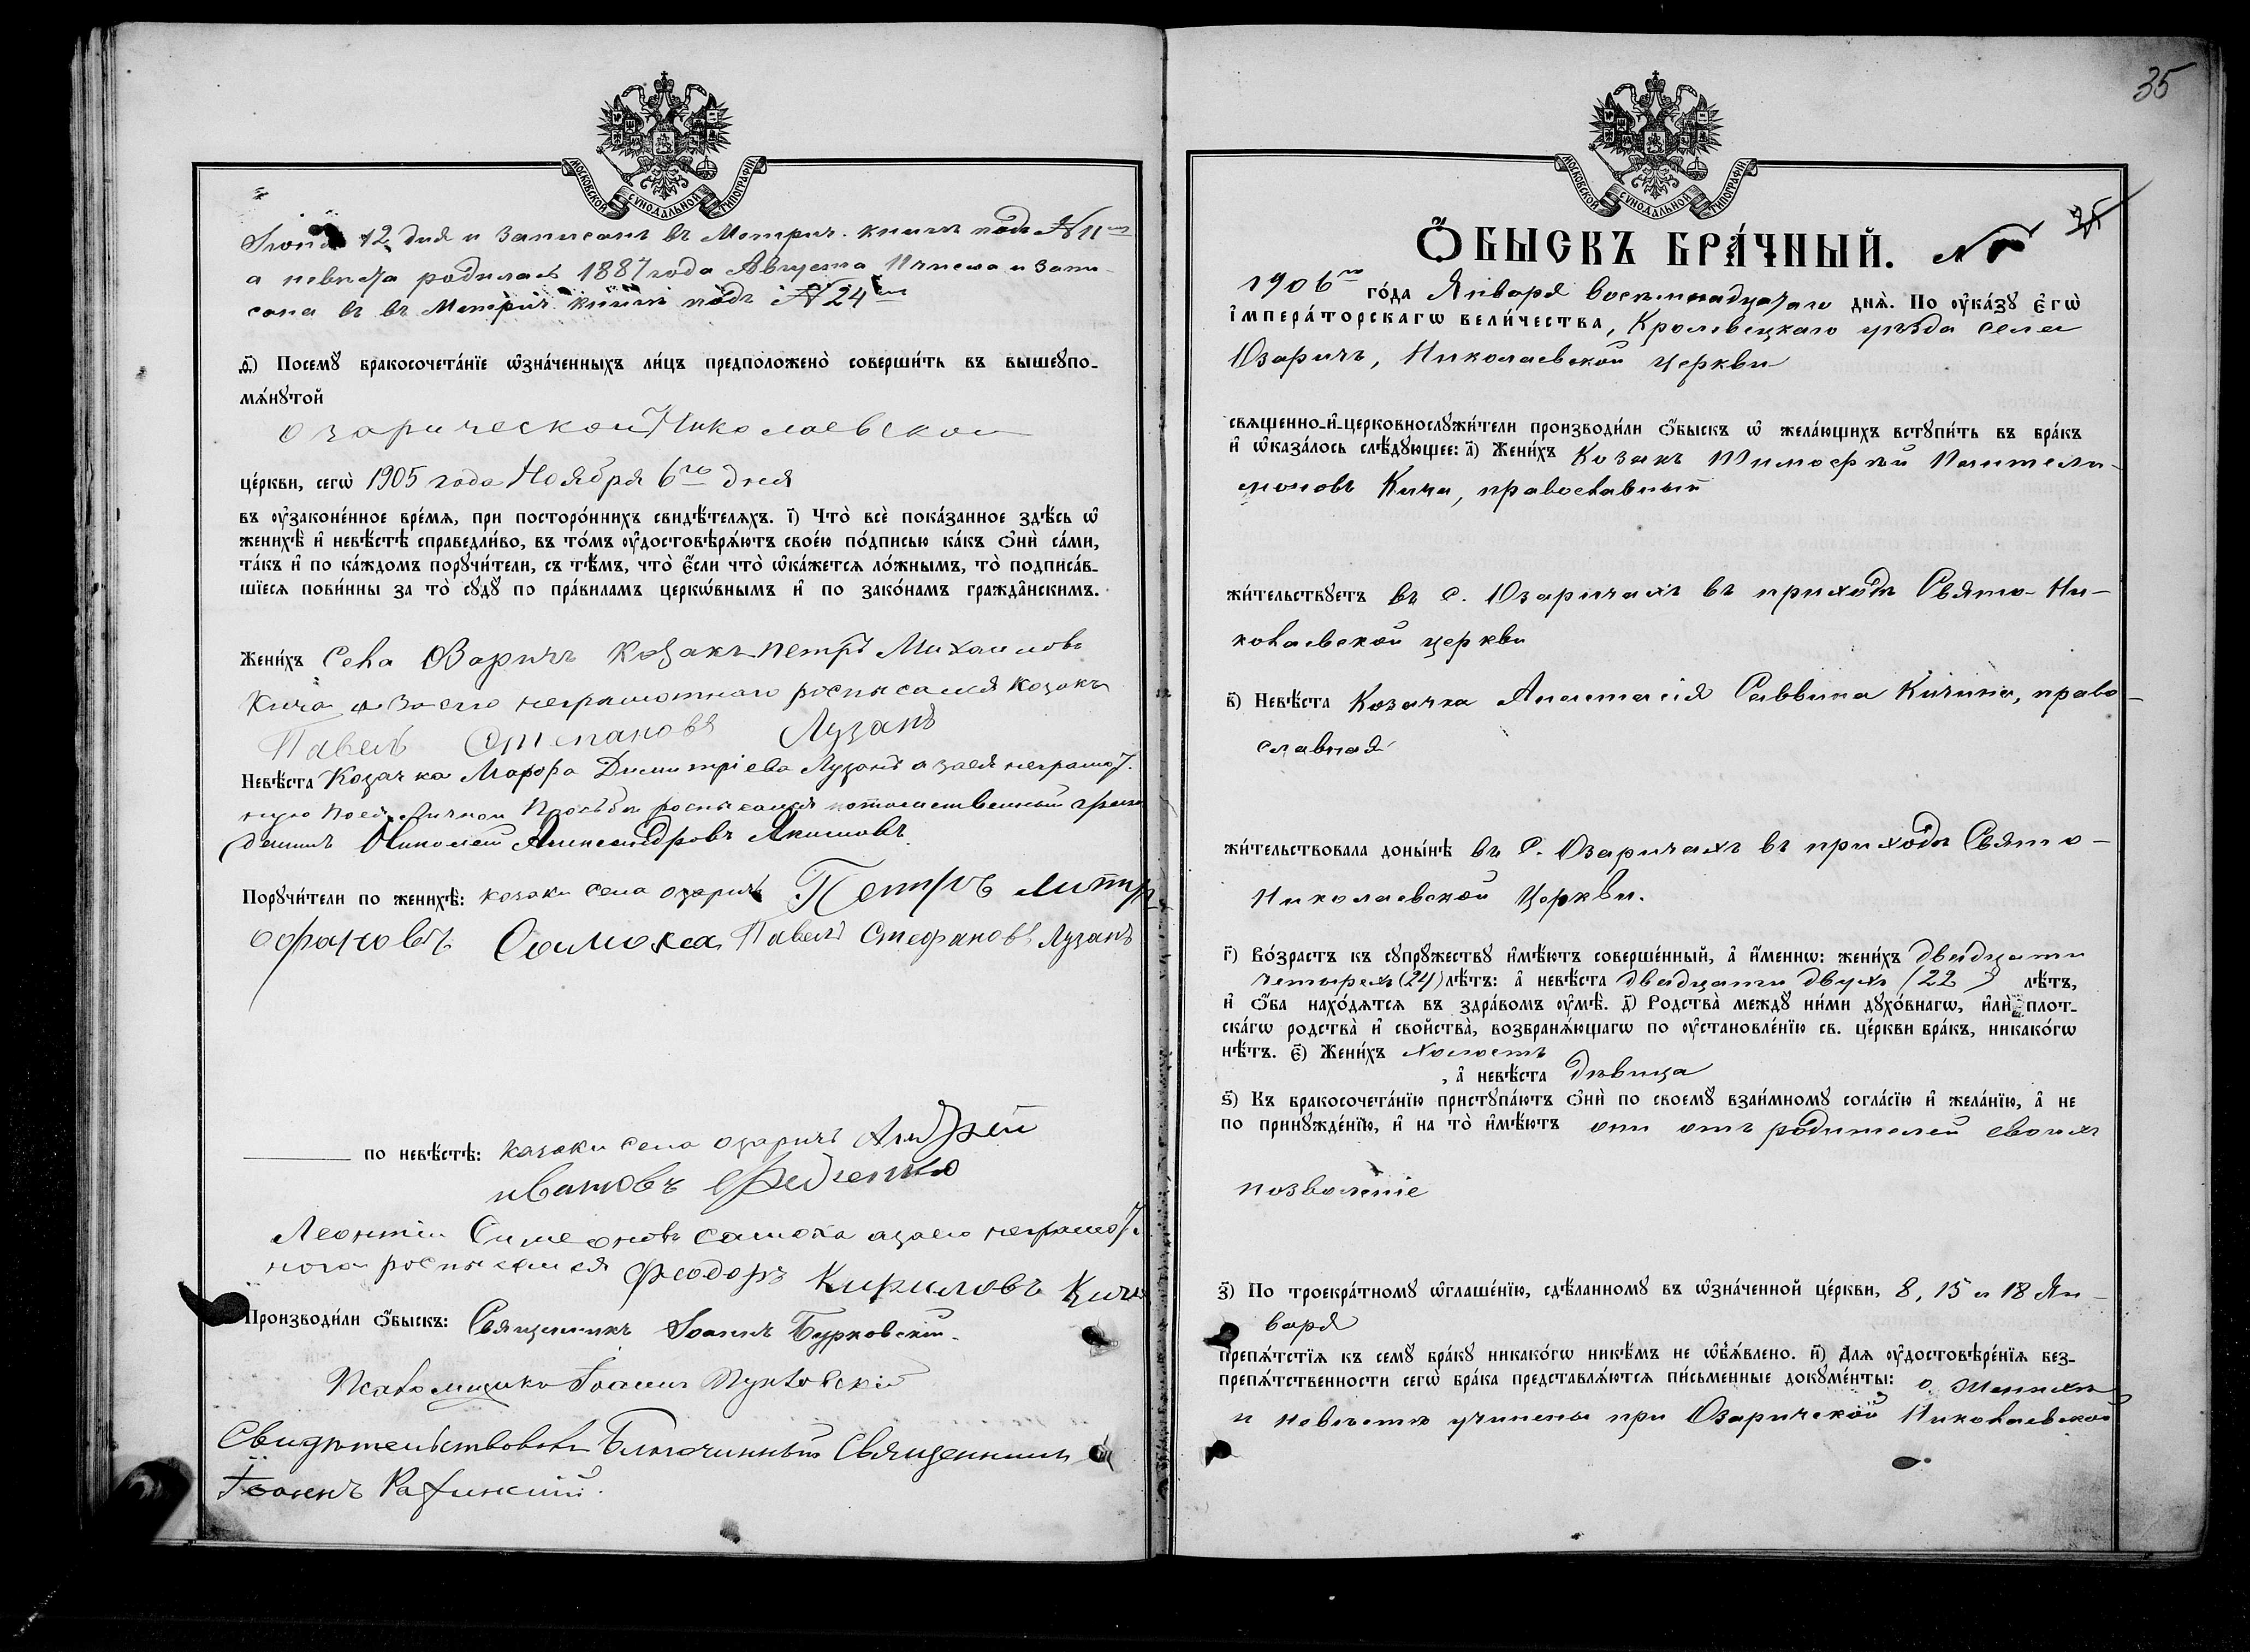 МОСКОВСКОЙ СѴНОДАЛЬНОЙ ТИПОГРАФІИ
12 дня и записанъ въ Метрич. книгѣ подъ № 11мъ
а невѣста родилась 1887 года Августа и запи-
сана въ въ Метрич. книгѣ подъ № 24мъ
ѳ҃) Посемꙋ бракосочета́нїе ѡ҆зна́ченныхъ ли́цъ предположено̀ соверши́ть въ вышеꙋпо-
мѧ́нꙋтой
Озарической Николаевской
це́ркви, сегѡ̀ 1905 года Ноября 6го дня
въ ᲂу҆законе́нное вре́мѧ, при посторо́ннихъ свидѣ́телѧхъ. і҃) Что̀ всѐ пока́занное здѣ́сь ѡ҆
женихѣ̀ и҆ невѣ́стѣ справедли́во, въ то́мъ ᲂу҆достовѣрѧ́ютъ свое́ю по́дписью ка́къ ѻ҆нѝ са́ми,
та́къ и҆ по ка́ждомъ порꙋчи́тели, съ тѣ́мъ, что̀ є҆́сли что̀ ѡ҆ка́жетсѧ ло́жнымъ, то̀ подписа́в-
шїесѧ пови́нны за то̀ сꙋдꙋ̀ по пра́виламъ церкѡ́внымъ и҆ по зако́намъ гражда̑нскимъ.
Жени́хъ Села Озаричъ Козакъ Петръ Михаиловъ
Кича а за его неграмотнаго росписался козакъ
Павелъ Степановъ Лузанъ
Невѣ́ста Козачка Марфа Димитріева Лузанъ а за ея неграмот.
ную по ея личной просьбѣ росписался потомственный граж
данинъ Николай Александровъ Акимовъ
Порꙋчи́тели по женихѣ̀: козаки села озаричъ Петръ Митр
офановъ Самоха Павелъ Стефановъ Лузанъ
по невѣ́стѣ: казаки села озаричъ Андрей
ивановъ Федченко
Леонтій Симеоновъ Самоха а за его неграмот.
ного росписался Феодоръ Кириловъ Кича
Производи́ли ѻ҆́быскъ: Священникъ Іоаннъ Бурковскій.
Псаломщикъ Іоаннъ
Свидѣтельствовалъ Благочинный Священникъ
Іоаннъ
35
МОСКОВСКОЙ СѴНОДАЛЬНОЙ ТИПОГРАФІИ
Ѻ҆́БЫСКЪ БРА́ЧНЫЙ. №
1906го го́да Января восемнадцатаго днѧ̀. По ᲂу҆ка́зꙋ є҆гѡ̀
і҆мпера́торскагѡ вели́чества, Кролевецкаго уѣзда села
Озаричъ, Николаевской церкви
свѧщенно-и҆-церковнослꙋжи́тели производи́ли ѻ҆́быскъ ѡ҆ жела́ющихъ встꙋпи́ть въ бра́къ
и҆ ѡ҆каза́лось слѣ́дꙋющее: а҃) Жени́хъ Козакъ Тимофѣй Пантели-
моновъ Кича, православный
жи́тельствꙋетъ въ с. Озаричахъ въ приходѣ Свято-Ни-
колаевской церкви
в҃) Невѣ́ста Козачка Анастасія Саввина Кичина, право-
славная
жи́тельствовала донынѣ въ с. Озаричахъ въ приходѣ Свято-
Николаевской Церкви.
г҃) Во́зрастъ къ сꙋпрꙋ́жествꙋ и҆мѣ́ютъ соверше́нный, а҆ и҆́меннѡ: жени́хъ двадцати
четырехъ (24) лѣ́тъ: а҆ невѣ́ста двадцати двухъ (22) лѣ́тъ,
и҆ ѻ҆́ба нахо́дѧтсѧ въ здра́вомъ ᲂу҆мѣ̀. д҃) Родства̀ междꙋ ни́ми дꙋхо́внагѡ, и҆лѝ плот-
ска́гѡ родства̀ и҆ свойства̀, возбранѧ́ющагѡ по ᲂу҆становле́нїю св. це́ркви бра́къ, никако́гѡ
нѣ́тъ. є҃) Жени́хъ Холостъ
, а҆ невѣ́ста дѣвица
ѕ҃) Къ бракосочета́нїю пристꙋпа́ютъ ѻ҆нѝ по своемꙋ̀ взаи́мномꙋ согла́сїю и҆ жела́нїю, а҆ не
по принꙋжде́нїю, и҆ на то̀ и҆мѣ́ютъ они отъ родителей своихъ
позволеніе
з҃) По троекра́тномꙋ ѡ҆глаше́нїю, сдѣ́ланномꙋ въ ѡ҆зна́ченной це́ркви, 8, 15 и 18 Ян-
варя
препѧ́тстїѧ къ семꙋ̀ бра́кꙋ никако́гѡ никѣ́мъ не ѡ҆б̾ѧ́влено. и҃) Длѧ ᲂу҆достовѣре́нїѧ без-
препѧ́тственности сегѡ̀ бра́ка представлѧ́ютсѧ пи́сьменные докꙋме́нты: о женихѣ
и невѣстѣ учинены при Озарической Николаевской